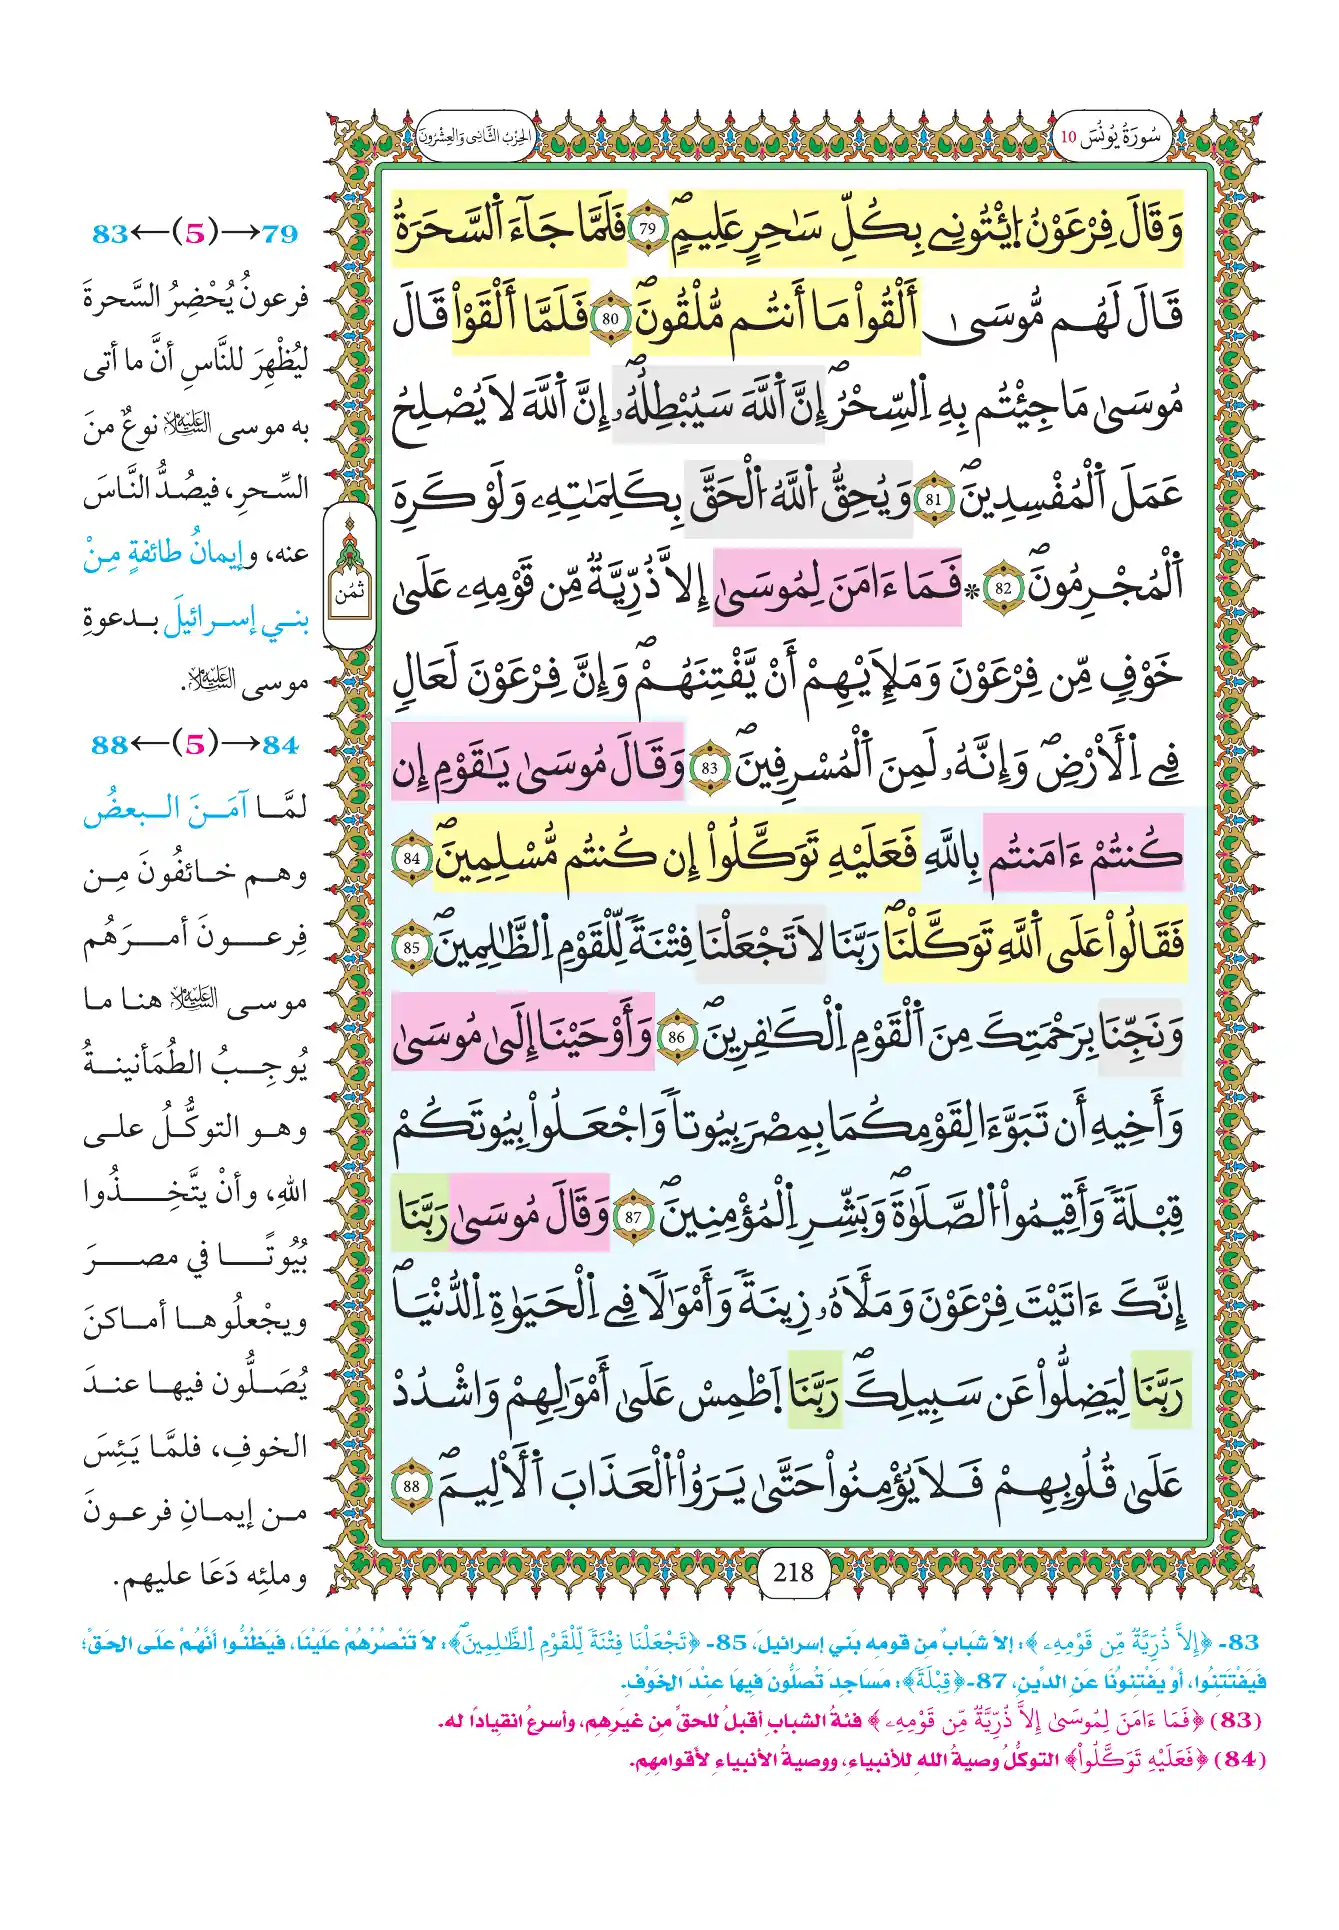 سُورَةُ يُونُسَ 10
الحِزْبُ الثَّانِي وَالعِشْرُونَ
وَقَالَ فِرْعَوْنُ اُ۪يتُونِے بِكُلِّ سَٰحِرٍ عَلِيمٖۖ 79 فَلَمَّا جَآءَ اَ۬لسَّحَرَةُ
قَالَ لَهُم مُّوسَىٰٓ أَلْقُواْ مَآ أَنتُم مُّلْقُونَۖ 80 فَلَمَّآ أَلْقَوْاْ قَالَ
مُوسَىٰ مَا جِئْتُم بِهِ اِ۬لسِّحْرُۖ إِنَّ اَ۬للَّهَ سَيُبْطِلُهُۥٓۖ إِنَّ اَ۬للَّهَ لَا يُصْلِحُ
عَمَلَ اَ۬لْمُفْسِدِينَۖ 81 وَيُحِقُّ اُ۬للَّهُ اُ۬لْحَقَّ بِكَلِمَٰتِهِۦ وَلَوْ كَرِهَ
اَ۬لْمُجْرِمُونَۖ 82 * فَمَآ ءَامَنَ لِمُوسَىٰٓ إِلَّا ذُرِّيَّةٞ مِّن قَوْمِهِۦ عَلَىٰ
خَوْفٖ مِّن فِرْعَوْنَ وَمَلَإِيْهِمْ أَنْ يَّفْتِنَهُمْۖ وَإِنَّ فِرْعَوْنَ لَعَالٖ
فِے اِ۬لْأَرْضِۖ وَإِنَّهُۥ لَمِنَ اَ۬لْمُسْرِفِينَۖ 83 وَقَالَ مُوسَىٰ يَٰقَوْمِ إِن
كُنتُمْ ءَامَنتُم بِاللَّهِ فَعَلَيْهِ تَوَكَّلُوٓاْ إِن كُنتُم مُّسْلِمِينَۖ 84
فَقَالُواْ عَلَى اَ۬للَّهِ تَوَكَّلْنَاۖ رَبَّنَا لَا تَجْعَلْنَا فِتْنَةٗ لِّلْقَوْمِ اِ۬لظَّٰلِمِينَۖ 85
وَنَجِّنَا بِرَحْمَتِكَ مِنَ اَ۬لْقَوْمِ اِ۬لْكَٰفِرِينَۖ 86 وَأَوْحَيْنَآ إِلَىٰ مُوسَىٰ
وَأَخِيهِ أَن تَبَوَّءَا لِقَوْمِكُمَا بِمِصْرَ بِيُوتاٗ وَاجْعَلُواْ بِيُوتَكُمْ
قِبْلَةٗ وَأَقِيمُواْ اُ۬لصَّلَوٰةَۖ وَبَشِّرِ اِ۬لْمُؤْمِنِينَۖ 87 وَقَالَ مُوسَىٰ رَبَّنَآ
إِنَّكَ ءَاتَيْتَ فِرْعَوْنَ وَمَلَأَهُۥ زِينَةٗ وَأَمْوَٰلاٗ فِے اِ۬لْحَيَوٰةِ اِ۬لدُّنْيَاۖ
رَبَّنَا لِيَضِلُّواْ عَن سَبِيلِكَۖ رَبَّنَا اَ۪طْمِسْ عَلَىٰٓ أَمْوَٰلِهِمْ وَاشْدُدْ
عَلَىٰ قُلُوبِهِمْ فَلَا يُؤْمِنُواْ حَتَّىٰ يَرَوُاْ اُ۬لْعَذَابَ اَ۬لْأَلِيمَۖ 88
ثُمُن
218
79→(5)←83
فرعونُ يُحْضِرُ السَّحرةَ
ليُظْهِرَ للنَّاسِ أنَّ ما أتى
به موسى عليه السلام نوعٌ منَ
السِّحرِ، فيصُدُّ النَّاسَ
عنه، وإيمانُ طائفةٍ مِنْ
بني إسرائيلَ بدعوةِ
موسى عليه السلام.
84→(5)←88
لمَّا آمَنَ البعضُ
وهم خائفُونَ مِن
فِرعونَ أمرَهُم
موسى عليه السلام هنا ما
يُوجِبُ الطُمَأنينةُ
وهو التوكُّلُ على
اللهِ، وأنْ يتَّخِذُوا
بُيُوتًا في مصرَ
ويجْعلُوها أماكنَ
يُصَلُّون فيها عندَ
الخوفِ، فلمَّا يَئِسَ
من إيمانِ فرعونَ
وملئِه دَعَا عليهم.
83- ﴿إِلَّا ذُرِّيَّةٞ مِّن قَوْمِهِۦ﴾: إلا شَبابٌ من قومِه بَني إسرائيلَ، 85- ﴿تَجْعَلْنَا فِتْنَةٗ لِّلْقَوْمِ اِ۬لظَّٰلِمِينَۖ﴾: لا تَنْصُرْهُمْ عَلَيْنَا، فَيَظُنُّوا أَنَّهُمْ عَلَى الحَقِّ؛
فَيَفْتَتِنُوا، أَوْ يَفْتِنُونَا عَنِ الدِّينِ، 87- ﴿قِبْلَةٗ﴾: مَسَاجِدَ تُصَلُّونَ فِيهَا عِنْدَ الخَوْفِ.
(83) ﴿فَمَآ ءَامَنَ لِمُوسَىٰٓ إِلَّا ذُرِّيَّةٞ مِّن قَوْمِهِۦ﴾ فئةُ الشبابِ أقبلُ للحقِّ من غيرِهِم، وأسرعُ انقيادًا له.
(84) ﴿فَعَلَيْهِ تَوَكَّلُوٓاْ﴾ التوكُّلُ وصيةُ اللهِ للأنبياءِ، ووصيةُ الأنبياءِ لأقوامِهِم.